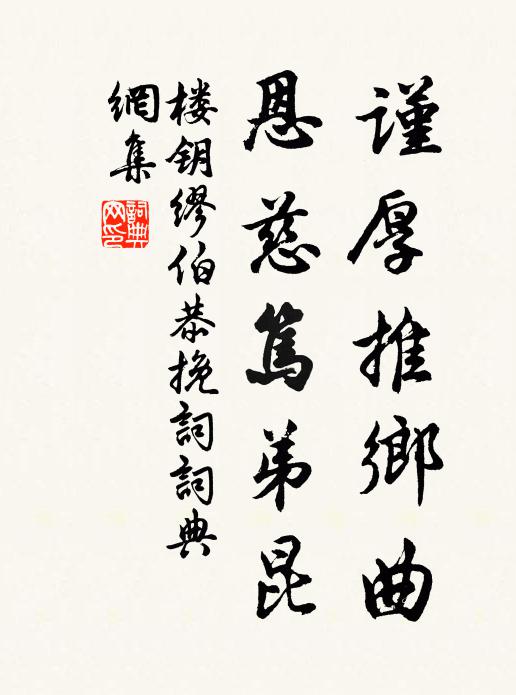 謹厚推鄉曲
恩慈篤弟昆
楼钥繆伯恭挽詞詞典
網集
詞典
网印